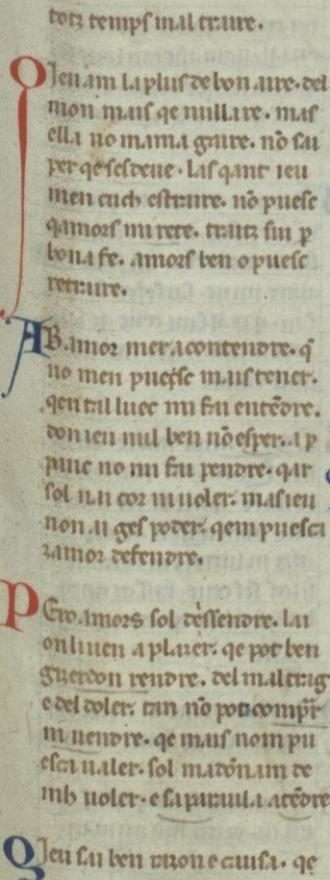 totz temps mal traire.
Jeu am la plus de bon aire. del
mon mais qe nulla re. mas
ella no mama gaire. nō sai
per qe sesdeue. las qant ieu
men cuch estraire. nō puesc
qamors mi rete. traitz sui p
bona fe. amors ben o puesc
retraire.
AB. amor mer a contendre. q̄
no men puesc mais tener.
qen tal luec mi fai entēdre.
don ieu nul ben nō esper. a p
pauc no mi fai pendre. qar
sol nai cor ni uoler. mas ieu
non ai ges poder. qem puesca
zamor defendre.
PEro amors sol dessendre. lai
on li uen a plazer. qe pot ben
guerdon rendre. del maltrag
e del doler. tan nō pot comp̄r
ni uendre. qe mais nom pu
esca ualer. sol madōnam de
inh uoler. e sa paraula atēdre
Jeu sai ben razon e causa. qe